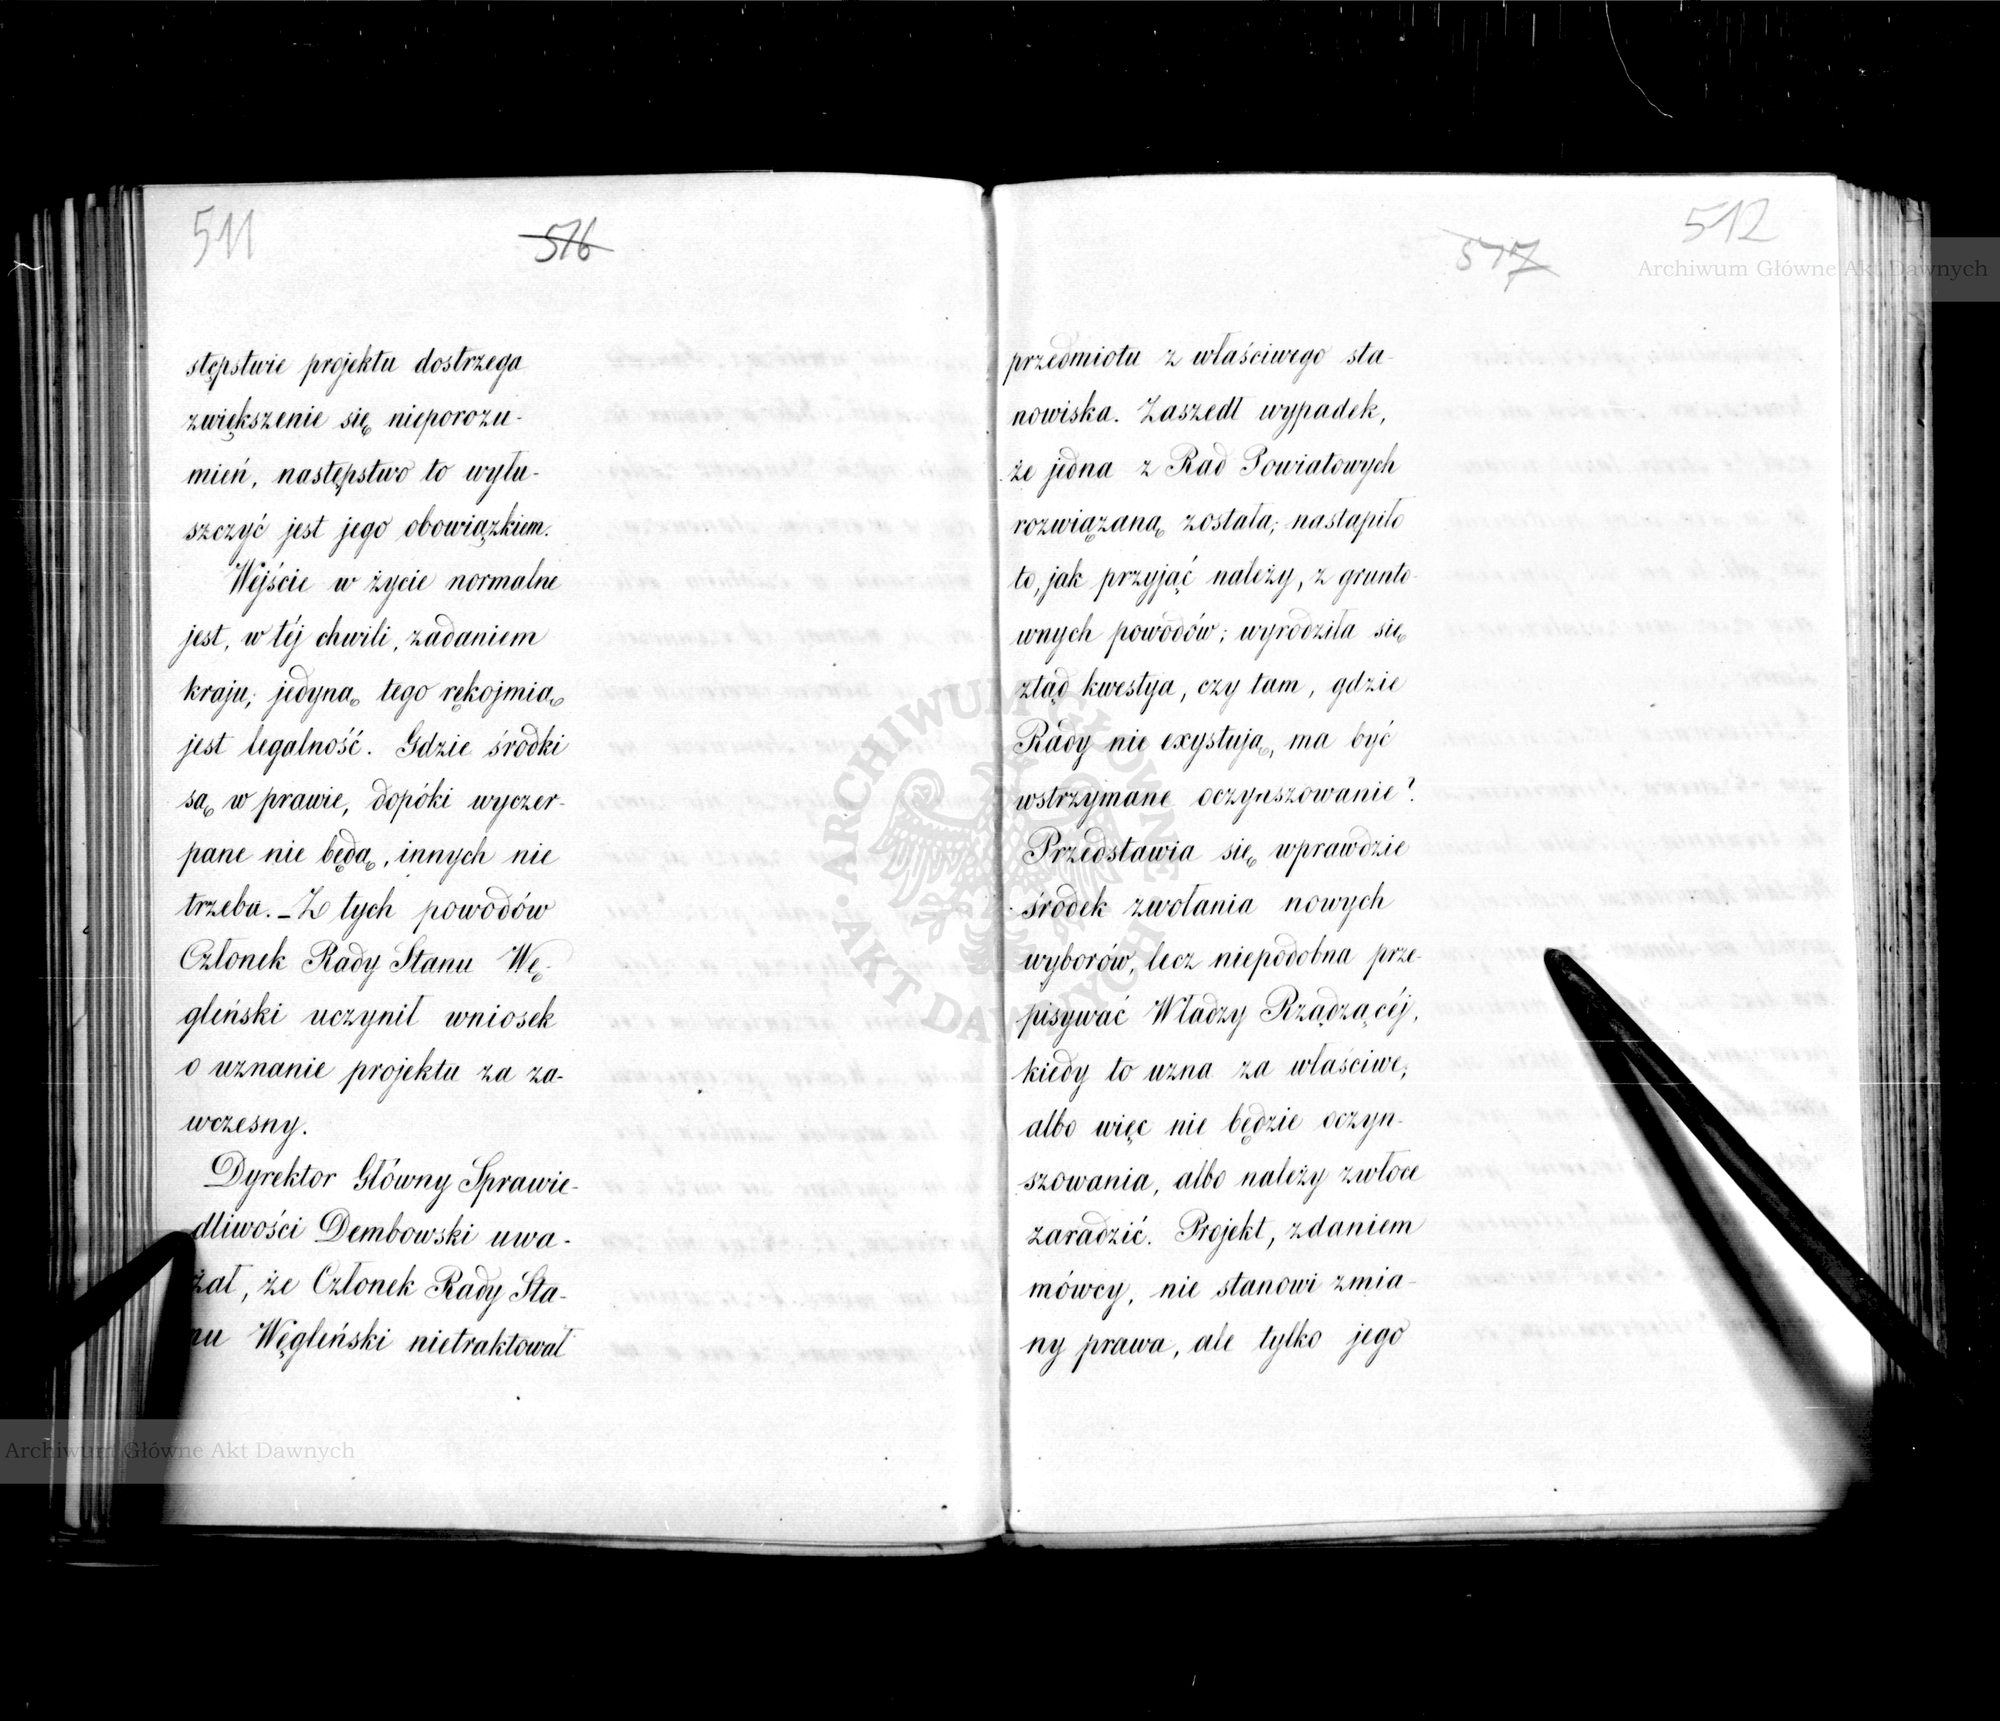 511
516
stępstwie projektu dostrzega
zwiększenie się nieporozu-
mień, następstwo to wyłu-
szczyć jest jego obowiązkiem.
Wejście w życie normalne
jest, w téj chwili, zadaniem
kraju; jedyną tego rękojmią
jest legalność. Gdzie środki
są w prawie, dopóki wyczer-
pane nie będą, innych nie
trzeba. – Z tych powodów
Członek Rady Stanu Wę-
gleński uczynił wniosek
o uznanie projektu za za-
wczesny.
Dyrektor Główny Sprawie-
dliwości Dembowski uwa-
żał, że Członek Rady Sta-
nu Węgleński nietraktował
512
517
przedmiotu z właściwego sta-
nowiska. Zaszedł wypadek,
że jedna z Rad Powiatowych
rozwiązaną została; nastąpiło
to, jak przyjąć należy, z grunto-
wnych powodów; wyrodziła się
ztąd kwestya, czy tam, gdzie
Rady nie exystują, ma być
wstrzymane oczynszowanie?
Przedstawia się wprawdzie
środek zwołania nowych
wyborów, lecz niepodobna prze-
pisywać Władzy Rządzącéj,
kiedy to uzna za właściwe;
albo więc nie będzie oczyn-
szowania, albo należy zwłoce
zaradzić. Projekt, zdaniem
mówcy, nie stanowi zmia-
ny prawa, ale tylko jego
Archiwum Główne Akt Dawnych
ARCHIWUM GŁÓWNE AKT DAWNYCH
Archiwum Główne Akt Dawnych